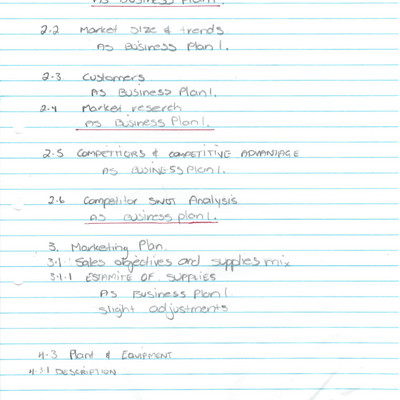 As Business Plan 1.
2.2 Market size & trends
As Business Plan 1.
2.3 Customers
As Business Plan 1.
2.4 Market reserch
As Business Plan 1.
2.5 COMPETITIORS & COMPETITIVE ADVANTAGE
As BUSINESS Plan 1.
2.6 Competitor SWOT Analysis
As Business plan 1.
3. Marketing Plan.
3.1 Sales objectives and supplies mix
3.1.1 ESTAMITE OF SUPPLIES
As Business Plan 1
slight adjustments
4.3 Plant & Equipment
4.3.1 DESCRIPTION